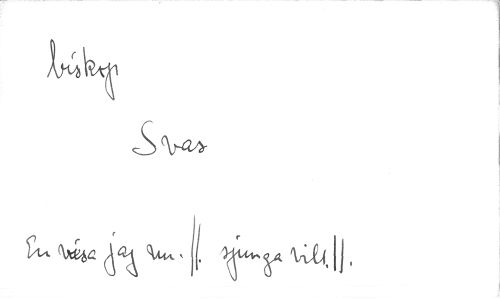 biskop
Svas
En visa jag nu. ||. sjunga vill. ||.